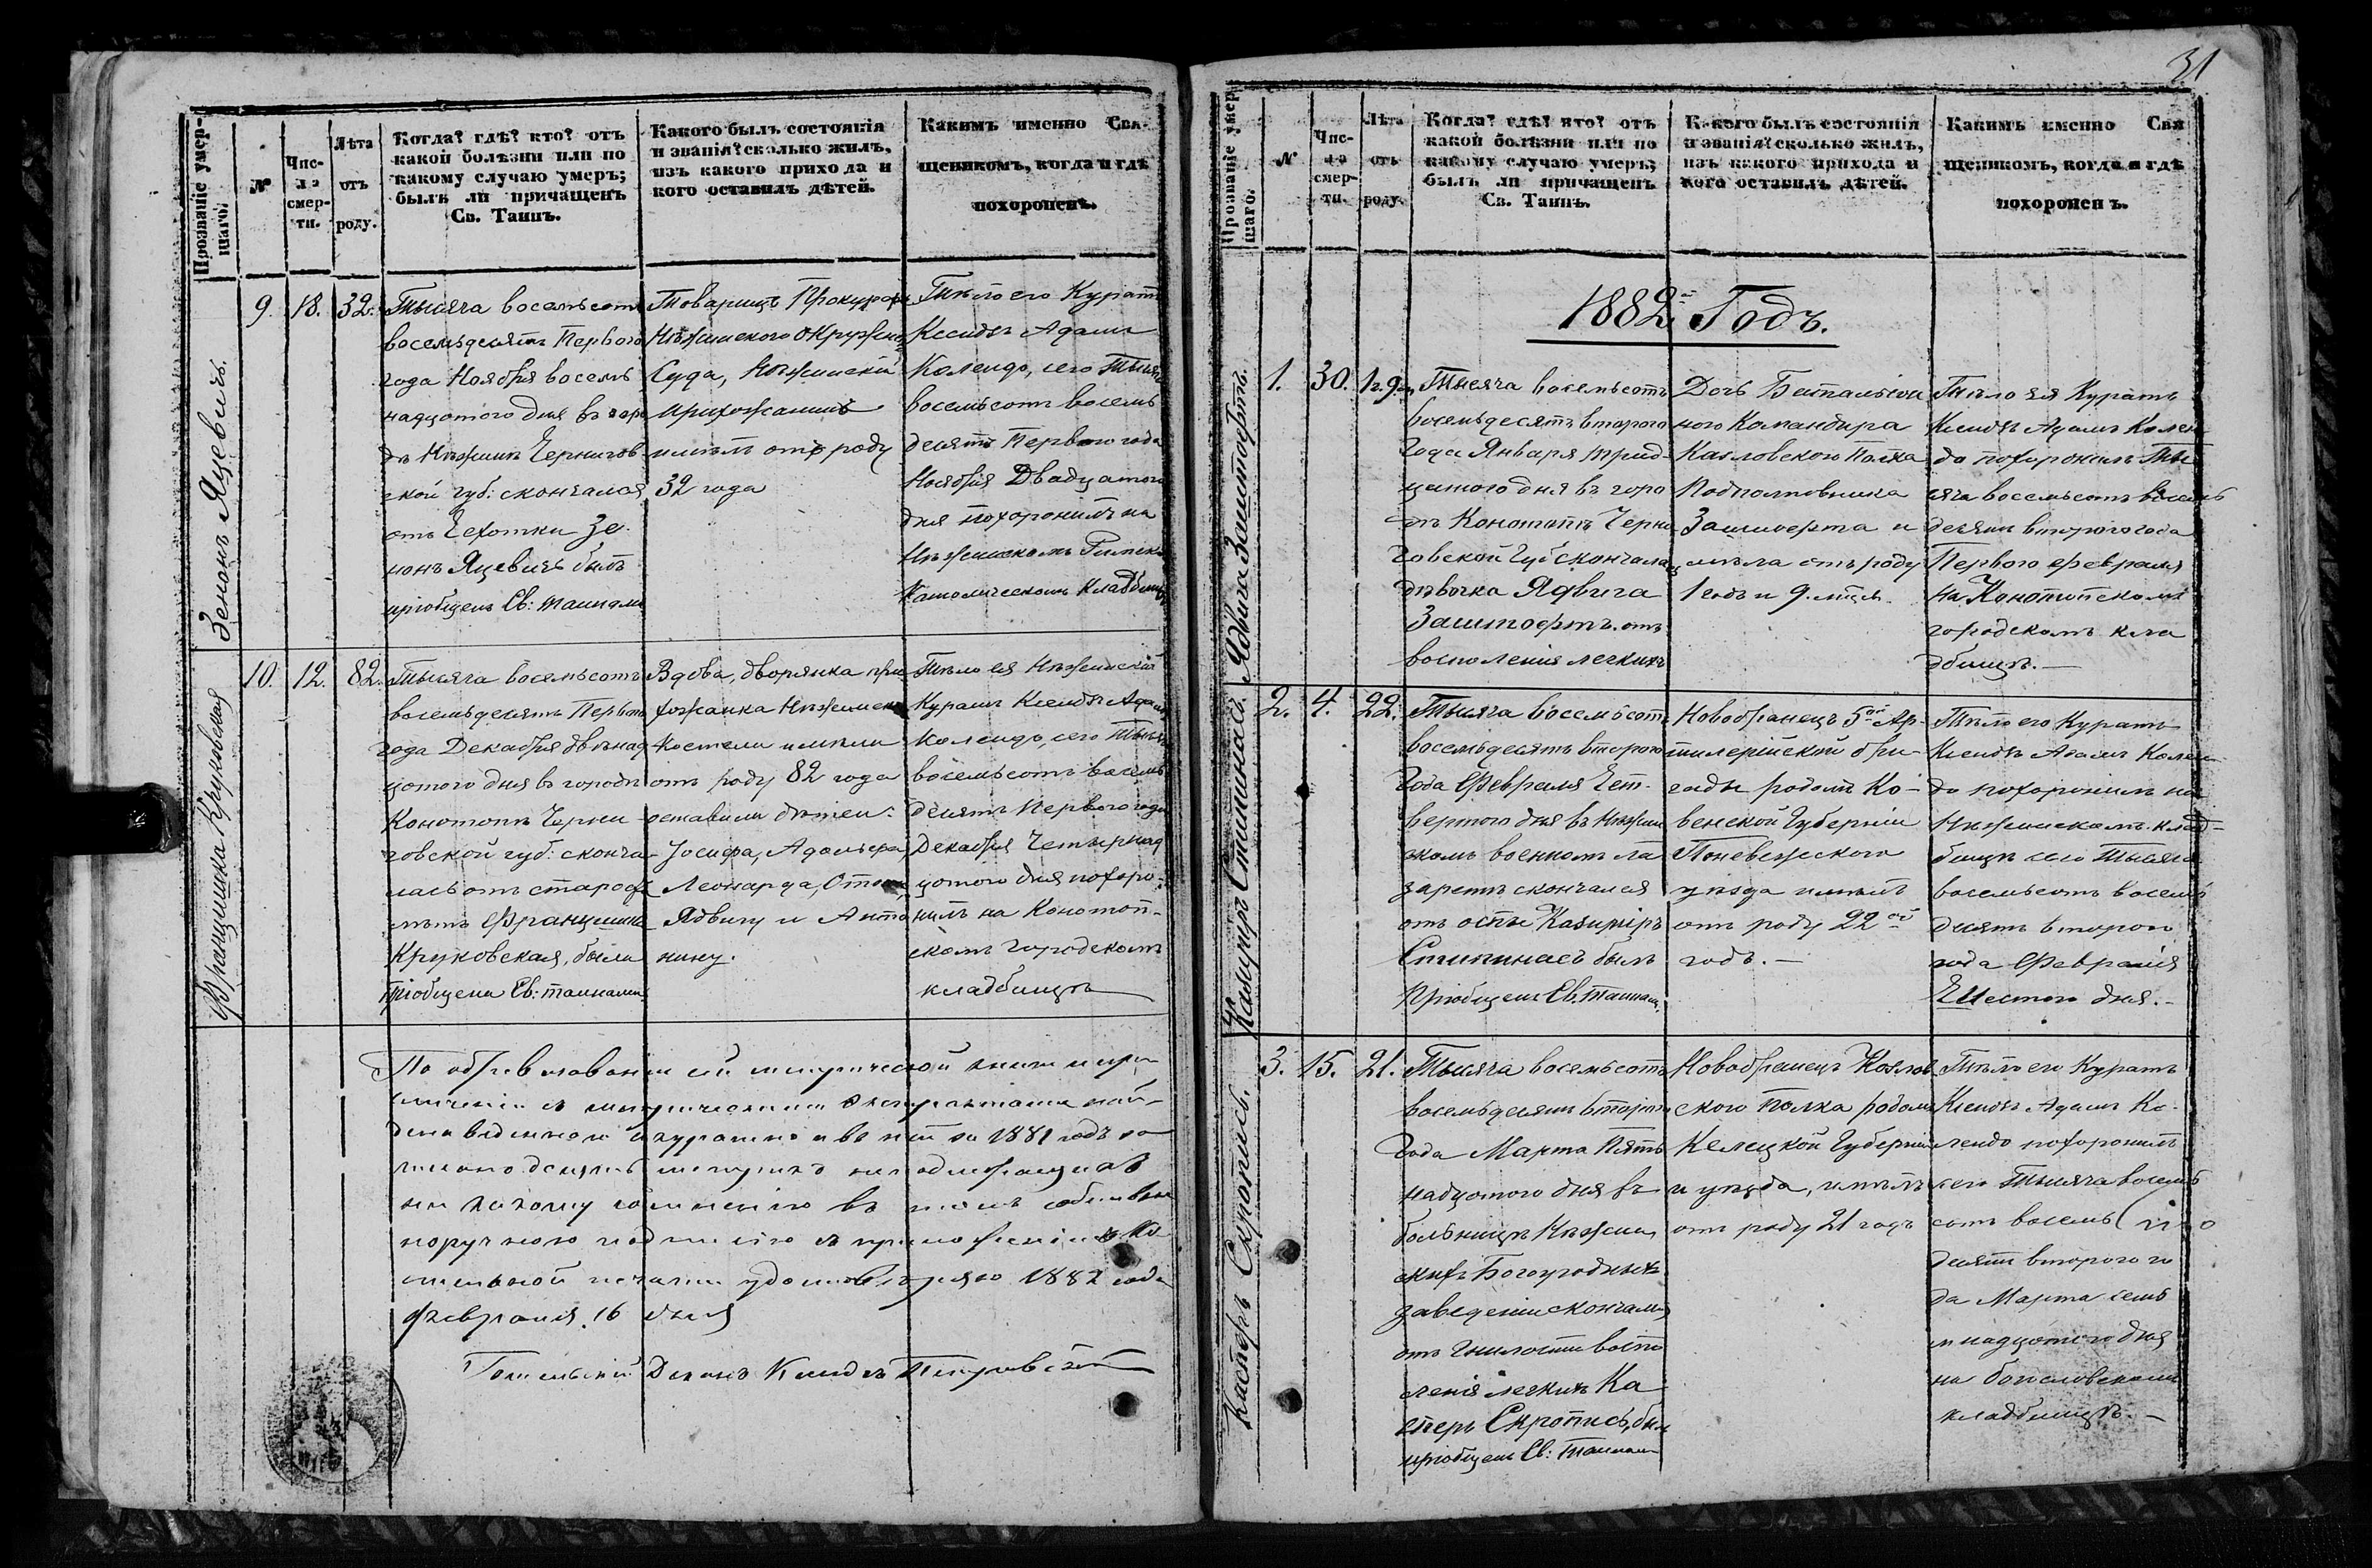 31
Прозваніе умер-
шаго.
№
Чис-
ла
смер-
ти.
Лѣта
отъ
роду.
Когда? гдѣ? кто? отъ
какой болѣзни или по
какому случаю умеръ;
былъ ли причащенъ
Св. Таинъ.
Какого былъ состоянія
и званія? сколько жилъ,
изъ какого прихода и
кого оставилъ дѣтей.
Какимъ именно Свя-
щеникомъ, когда и гдѣ
похороненъ.
Зенонъ Яцевичъ.
9.
18.
32.
Тысяча восемьсотъ
восемьдесятъ Перваго
года Ноября восемь
надцатого дня въ горо
дѣ Нѣжинѣ Чернигов
ской губ: скончался
отъ Чехотки Зе
нонъ Яцевичъ былъ
пріобщенъ Св: таинами
Товарищъ Прокурора
Нѣжинского Окружно
Суда, Нѣжинскій
прихожанинъ
имѣлъ отъ роду
32 года
Тѣло его Куратъ
Ксендзъ Адамъ
Календо, сего Тысяча
восемьсотъ восемь
десятъ Перваго года
Ноября Двадцатого
дня похоронилъ на
Нѣжинскомъ Римско
Католическомъ Кладбищѣ
Францишка Круковская
10.
12.
82.
Тысяча восемьсотъ
восемьдесятъ Перваго
года Декабря двѣнад
цатого дня въ городѣ
Конотопѣ Черни
говской губ: сконча
лась отъ старости
лѣтъ Францишка
Круковская, была
пріобщена Св: таинами
Вдова, дворянка при
хожанка Нѣжинска
Костела имѣла
отъ роду 82 года
оставила дѣтей:
Іосифа, Адольфа,
Леонарда, Оттона,
Ядвигу и Анто
нину.
Тѣло ея Нѣжинскій
Куратъ Ксендзъ Адамъ
Календо, сего Тысяча
восемьсотъ восемь
десятъ Перваго года
Декабря Четырнад
цатого дня похоро
нилъ на Конотоп-
скомъ городскомъ
кладбищѣ
По обревизованіи сей метрической книги и по
сличеніи съ метрическими экстрактами най-
дена веденною аккуратно и въ ней за 1881 годъ за
писано десять не подлежащихъ
ни какому сомнѣнію въ томъ собствен
норучною подписью съ приложеніемъ
печати удостовѣряю 1882 года
Февраля 16 дня
Гомельскій Деканъ Ксендзъ
Прозваніе умер-
шаго.
№
Чис-
ла
смер-
ти.
Лѣта
отъ
роду.
Когда? гдѣ? кто? отъ
какой болѣзни или по
какому случаю умеръ;
былъ ли причащенъ
Св. Таинъ.
Какого былъ состоянія
и званія? сколько жилъ,
изъ какого прихода и
кого оставилъ дѣтей.
Какимъ именно Свя
щеникомъ, когда и гдѣ
похороненъ.
1882й Годъ.
Ядвига Заштофтъ.
1.
30.
1г. 9м.
Тысяча восемьсотъ
восемьдесятъ второго
года Января трид
цатого дня въ горо
дѣ Конотопѣ Черни
говской Губ скончалась
дѣвочка Ядвига
Заштофтъ отъ
воспаленія легкихъ
Дочь Баталіон
ного Командира
Казловского Полка
Подполковника
Заштофта и
имѣла отъ роду
1 годъ и 9. мцъ.
Тѣло ея Куратъ
Ксендзъ Адамъ Кален
до похоронилъ Ты
сяча восемьсотъ восемь
десятъ второго года
Перваго Февраля
На Конотопскомъ
городскомъ кла
дбищѣ.—
Казимиръ Стипинасъ
2.
4.
22.
Тысяча восемьсотъ
восемьдесятъ второго
года Февраля Чет-
вертого дня въ Нѣжин
скомъ военномъ ла
заретѣ скончался
отъ оспы Казимиръ
Стипинасъ былъ
Пріобщенъ Св. таинами
Новобранецъ 5ой Ар-
тилерійской бри-
гады родомъ Ко-
венской Губерніи
Поневежского
уѣзда имѣлъ
отъ роду 22ой
годъ.—
Тѣло его Куратъ
Ксендзъ Адамъ Кален
до похоронилъ на
Нѣжинскомъ клад-
бищѣ сего Тысяча
восемьсотъ восемь
десятъ второго
года Февраля
Шестого дня.—
Касперъ Скропись.
3.
15.
21.
Тысяча восемьсотъ
восемьдесятъ второго
года Марта Пят
надцатого дня въ
больницѣ Нѣжин
скихъ Богоугодныхъ
заведеніи скончался
отъ Гнилости воспа
ленія легкихъ Ка
сперъ Скропись, былъ
пріобщенъ Св: таинами
Новобранецъ Козлов
ского Полка родомъ
Келецкой Губерніи
и уѣзда, имѣлъ
отъ роду 21 годъ
Тѣло его Куратъ
Ксендзъ Адамъ Ка-
лендо похоронилъ
сего Тысяча восемь
сотъ восемь
десятъ второго го
да Марта семь
надцатого дня
на богословскомъ
кладбищѣ.—